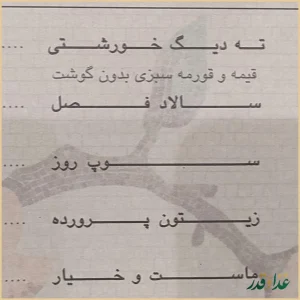 ته دیگ خورشتی ....
قیمه و قورمه سبزی بدون گوشت
سالاد فصل ....
سوپ روز ....
زیتون پرورده ....
ماست و خیار ....